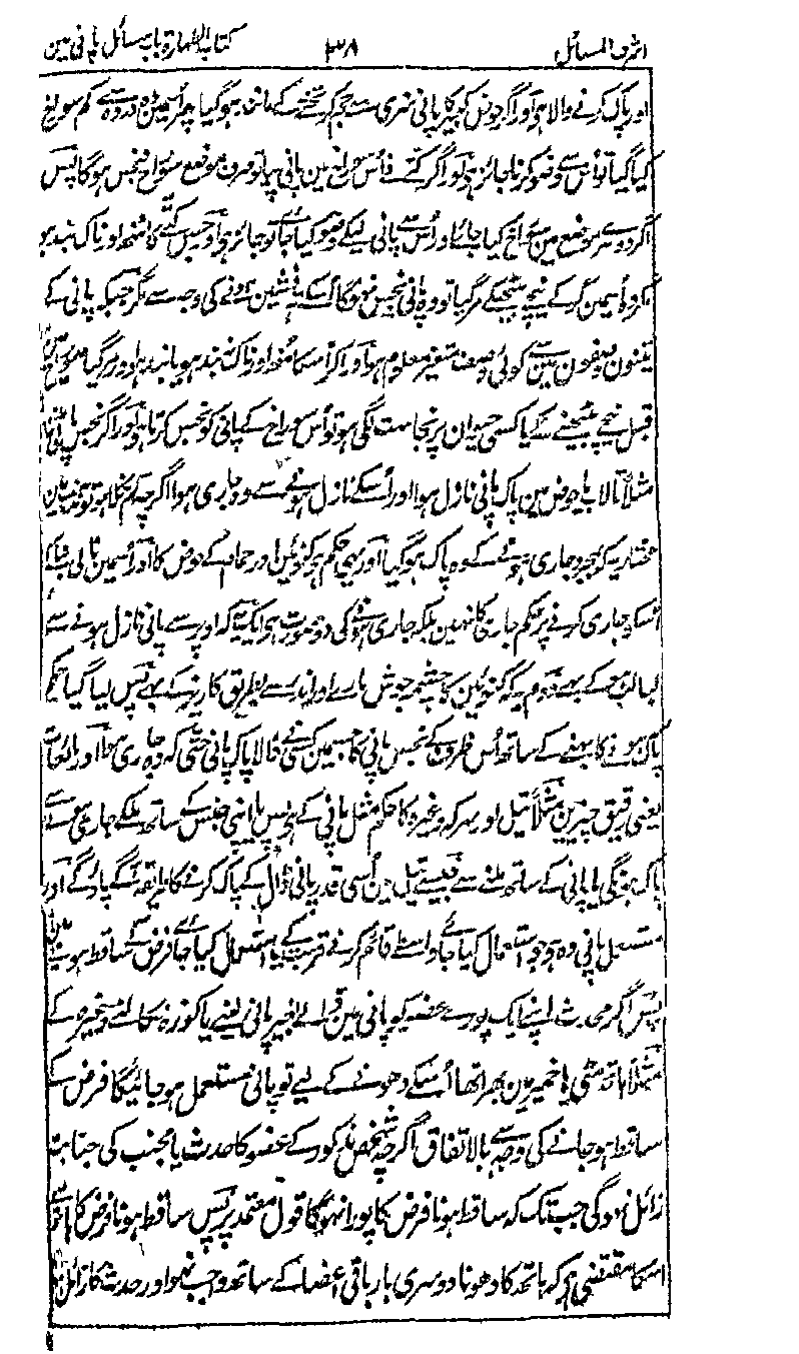 اشرف المسائل ۳۸ کتاب الطہارۃ باب مسائل پانی مین
اور پاک کرنے والا ہی اور اگر حوض کبیر کا پانی سردی سے جم کر تختے کے مانند ہو گیا پھر اسمین دہ در دہ سے کم سوراخ
کیا گیا تو اُس سے وضو کرنا جائز ہی اور اگر کتے نے اُس سوراخ مین پانی پیا تو صرف موضع سوراخ نجس ہو گا پس
اگر دوسرے موضع مین سوراخ کیا جائے اور اُس سے پانی لیکے وضو کیا جائے تو جائز ہی اور جس کتے کا منھ اور ناک بند ہو
مگر وہ اُسمین گر کے نیچے بیٹھکے مر گیا تو وہ پانی نجس نہو گا اُسکے تہ نشین ہونے کی وجہ سے مگر جبکہ پانی کے
تینون وصفون مین سے کوئی وصف متغیر معلوم ہو اور اگر اُسکا منھ اور ناک بند ہو یا نہ بند ہو اور مر گیا
قبل نیچے بیٹھنے کے یا کسی حیوان پر نجاست لگی ہو تو اُس سوراخ کے پانی کو نجس کرتا ہی اور اگر نجس پانی
مثلاً نالا یا حوض مین پاک پانی نازل ہوا اور اُسکے نازل ہونے سے وہ جاری ہوا اگرچہ کم نکلا ہو تو
مختار یہ کہ بمجرد جاری ہونے کے وہ پاک ہو گیا اور یہی حکم ہی کنوئین اور حمام کے حوض کا اور اُسمین نالی بنا کے
اُسکے جاری کرنے پر حکم جاری کا نہین بلکہ جاری ہونے کی دو صورت ہی ایک یہ کہ اوپر سے پانی نازل ہونے سے
لبالب ہو کے بہے دوم یہ کہ کنوئین کا چشمہ جوش مارے اور اندر سے بطریق کاریز کے بہے پس لیا گیا حکم
پاک ہونے کا بہنے کے ساتھ اُس ظرف کے نجس پانی کا جسمین کسی نے ڈالا پاک پانی حتی کہ وہ جاری ہوا اور مائعات
یعنی رقیق چیزین مثلاً تیل اور سرکہ وغیرہ کا حکم مثل پانی کے ہی پس یا اپنی جنس کے ساتھ ملکے جاری ہونے سے
پاک ہونگی یا پانی کے ساتھ ملنے سے جیسے تیل مین اُسی قدر پانی ڈال کے پاک کرنے کا طریقہ آگے پاؤ گے اور
مستعمل پانی وہ ہی جو استعمال کیا جاوے واسطے قائم کرنے قربت کے یا استعمال کیا جائے فرض کے ساقط ہونے مین
پس اگر محدث اپنے ایک پورے عضو کو پانی مین ڈالے بغیر پانی لینے یا کوزہ نکالنے وغیرہ کے
مثلاً ہاتھ مٹی یا خمیر مین بھرا تھا اُسکے دھونے کے لیے تو پانی مستعمل ہو جائیگا فرض کے
ساقط ہو جانے کی وجہ سے بالاتفاق اگرچہ شخص مذکور کے عضو کا حدث یا مجنب کی جنابت
زائل نہو گی جب تک کہ ساقط ہونا فرض کا پورا نہو گا قول معتمد پر پس ساقط ہونا فرض کا ہاتھ سے
اسکا مقتضی ہی کہ ہاتھ کا دھونا دوسری بار باقی اعضا کے ساتھ واجب نہو اور حدث کا زائل